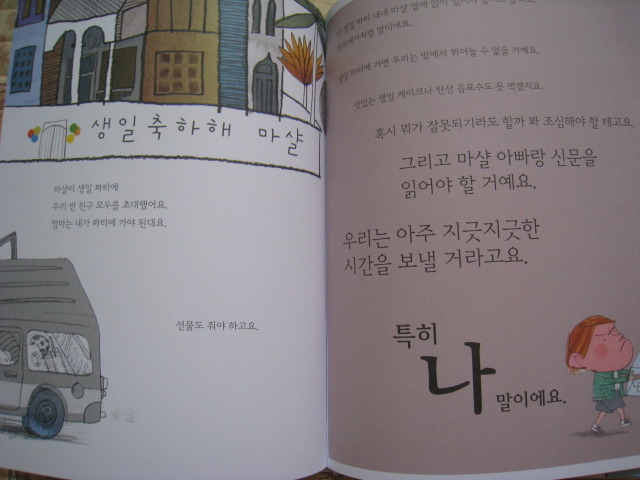 생일축하해 마샬
마샬이 생일 파티에
우리 반 친구 모두를 초대했어요.
엄마는 내가 파티에 가야 된대요.
선물도 줘야 하고요.
생일 파티 내내 마샬 옆에
말이에요.
생일 파티에 가면 우리는 밖에서 뛰어놀 수 없을 거예요.
맛있는 생일 케이크나 탄산 음료수도 못 먹겠지요.
혹시 뭐가 잘못되기라도 할까 봐 조심해야 할 테고요.
그리고 마샬 아빠랑 신문을
읽어야 할 거예요.
우리는 아주 지긋지긋한
시간을 보낼 거라고요.
특히
나
말이에요.